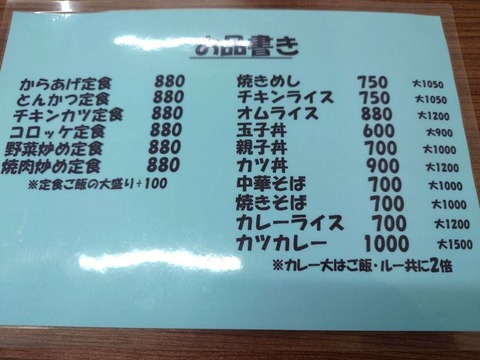 お品書き
からあげ定食 880
とんかつ定食 880
チキンカツ定食 880
コロッケ定食 880
野菜炒め定食 880
焼肉炒め定食 880
※定食ご飯の大盛り+100
焼きめし 750 大1050
チキンライス 750 大1050
オムライス 880 大1200
玉子丼 600 大900
親子丼 700 大1000
カツ丼 900 大1200
中華そば 700 大1000
焼きそば 700 大1000
カレーライス 700 大1200
カツカレー 1000 大1500
※カレー大はご飯・ルー共に2倍